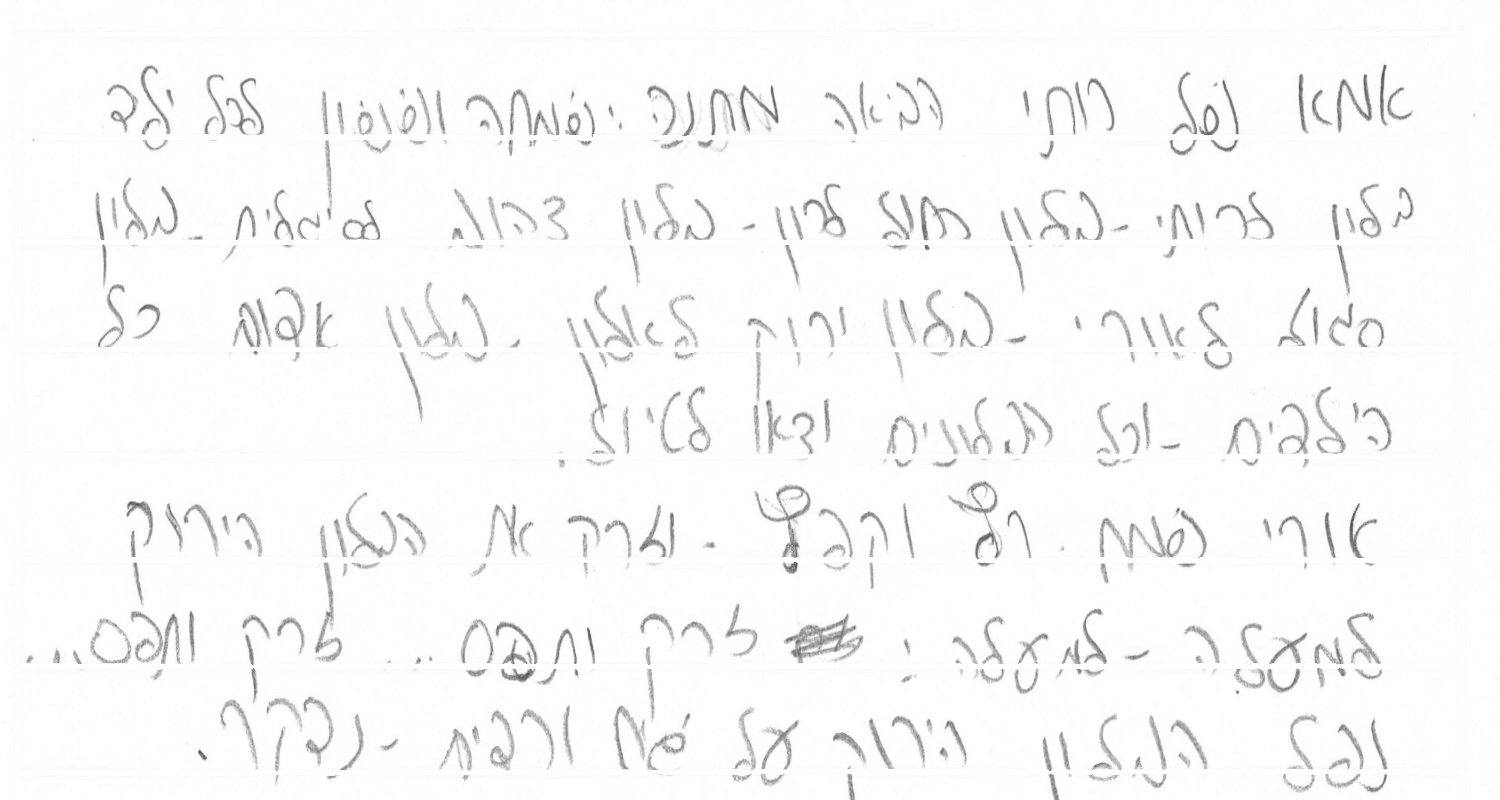 אמא של רותי הביאה מתנה: שמחה וששון לכל ילד
בלון לרותי - בלון כחול לרון - בלון צהוב לסיגלית - בלון
סגול לאורי - בלון ירוק לאלון - בלון אדום כל
הילדים - וכל הבלונים יצאו לטיול.
אורי שמח. רץ וקפץ - וזרק את הבלון הירוק
למעלה - למעלה: זרק ותפס... זרק ותפס...
נפל הבלון הירוק על שיח ורדים - נדקר.